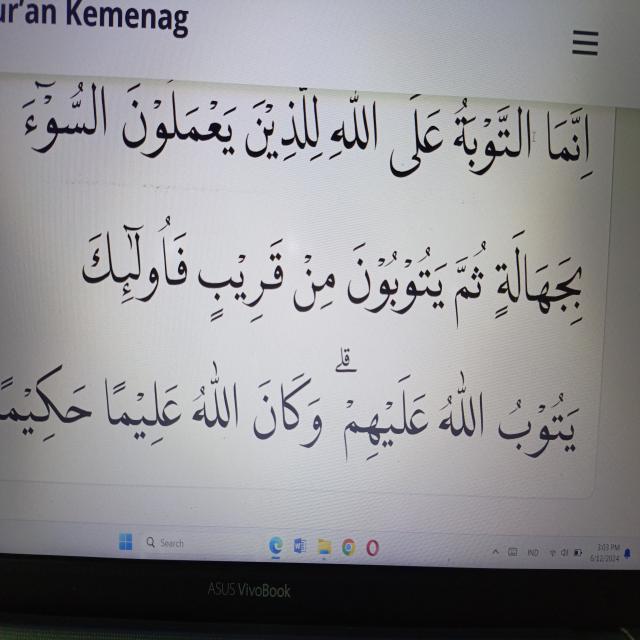 ur'an Kemenag
اِنَّمَا التَّوْبَةُ عَلَى اللّٰهِ لِلَّذِيْنَ يَعْمَلُوْنَ السُّوْۤءَ
بِجَهَالَةٍ ثُمَّ يَتُوْبُوْنَ مِنْ قَرِيْبٍ فَاُولٰۤىِٕكَ
يَتُوْبُ اللّٰهُ عَلَيْهِمْ ۗ وَكَانَ اللّٰهُ عَلِيْمًا حَكِيْمًا
Search
IND
3:03 PM
6/12/2024
ASUS VivoBook